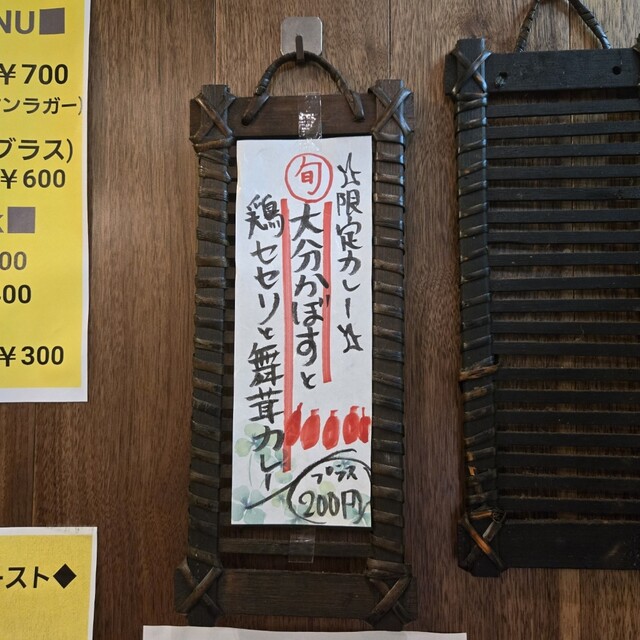 ☆限定カレー☆
旬
大分かぼすと
鶏セセリと舞茸カレー
プラス
200円
NU■
¥700
ンラガー)
グラス)
¥600
■
00
00
¥300
スト◆